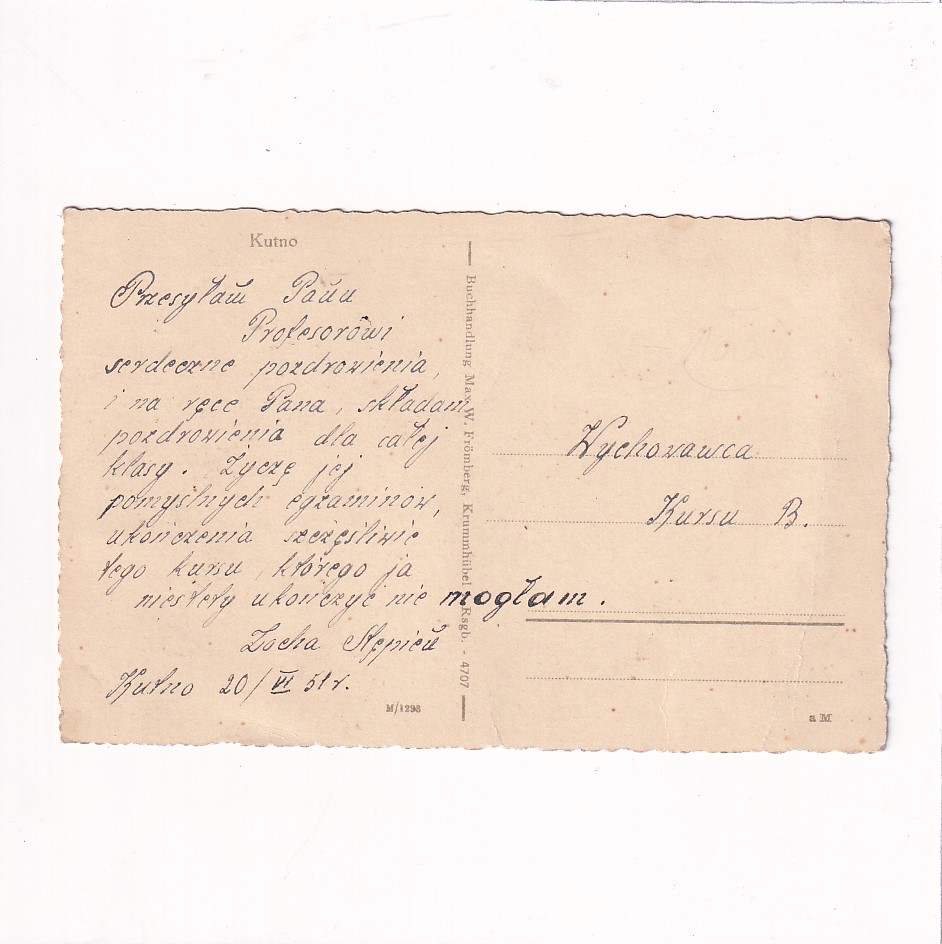 Kutno
Przesyłam Panu
Profesorowi
serdeczne pozdrowienia,
i na ręce Pana, składam
pozdrowienia dla całej
klasy. Życzę jej
pomyślnych egzaminów,
ukończenia szczęśliwie
tego kursu, którego ja
niestety ukończyć nie mogłam.
Zocha Stępień
Kutno 20/VI 51 r.
M/1298
Buchhandlung Max W. Frömberg, Krummhübel Rsgb. - 4707
Wychowawca
Kursu B.
a M